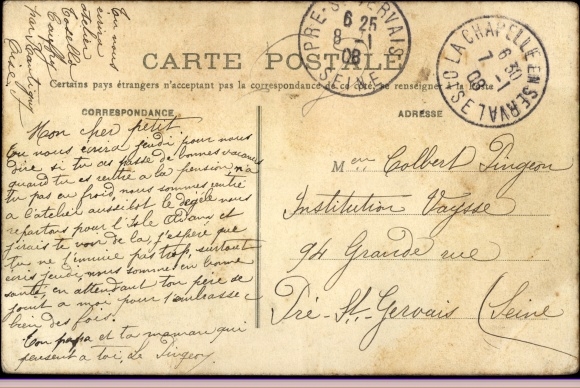 Tu nous
écrira
atelier
Tosello
par
CARTE POSTALE
Certains pays étrangers n'acceptant pas la correspondance de ce côté, se renseigner à la Poste
PRÉ-ST-GERVAIS
6 25
8 -1
08
SEINE
LA CHAPELLE EN SERVAL
6 30
7 -1
08
OISE
CORRESPONDANCE
Mon cher petit.
Tu nous écrira jeudi pour nous
dire si tu as passé de bonnes vacances
quand tu es rentré a la pension, n'a
tu pas eu froid, nous sommes rentré
a l'atelier aussitot le dégèle nous
repartons pour l'Isle Adam et
j'irais te voir de la, j'espère que
tu ne t'ennuie pas trop, surtout
écris jeudi, nous sommes en bonne
santé, en attendant ton père se
joint a moi pour t'embrasser
bien des fois.
Ton papa et ta maman qui
pensent a toi, Le Pingeon
ADRESSE
Colbert Pingeon
Institution Vaysse
94 Grande rue
Pré-St-Gervais (Seine